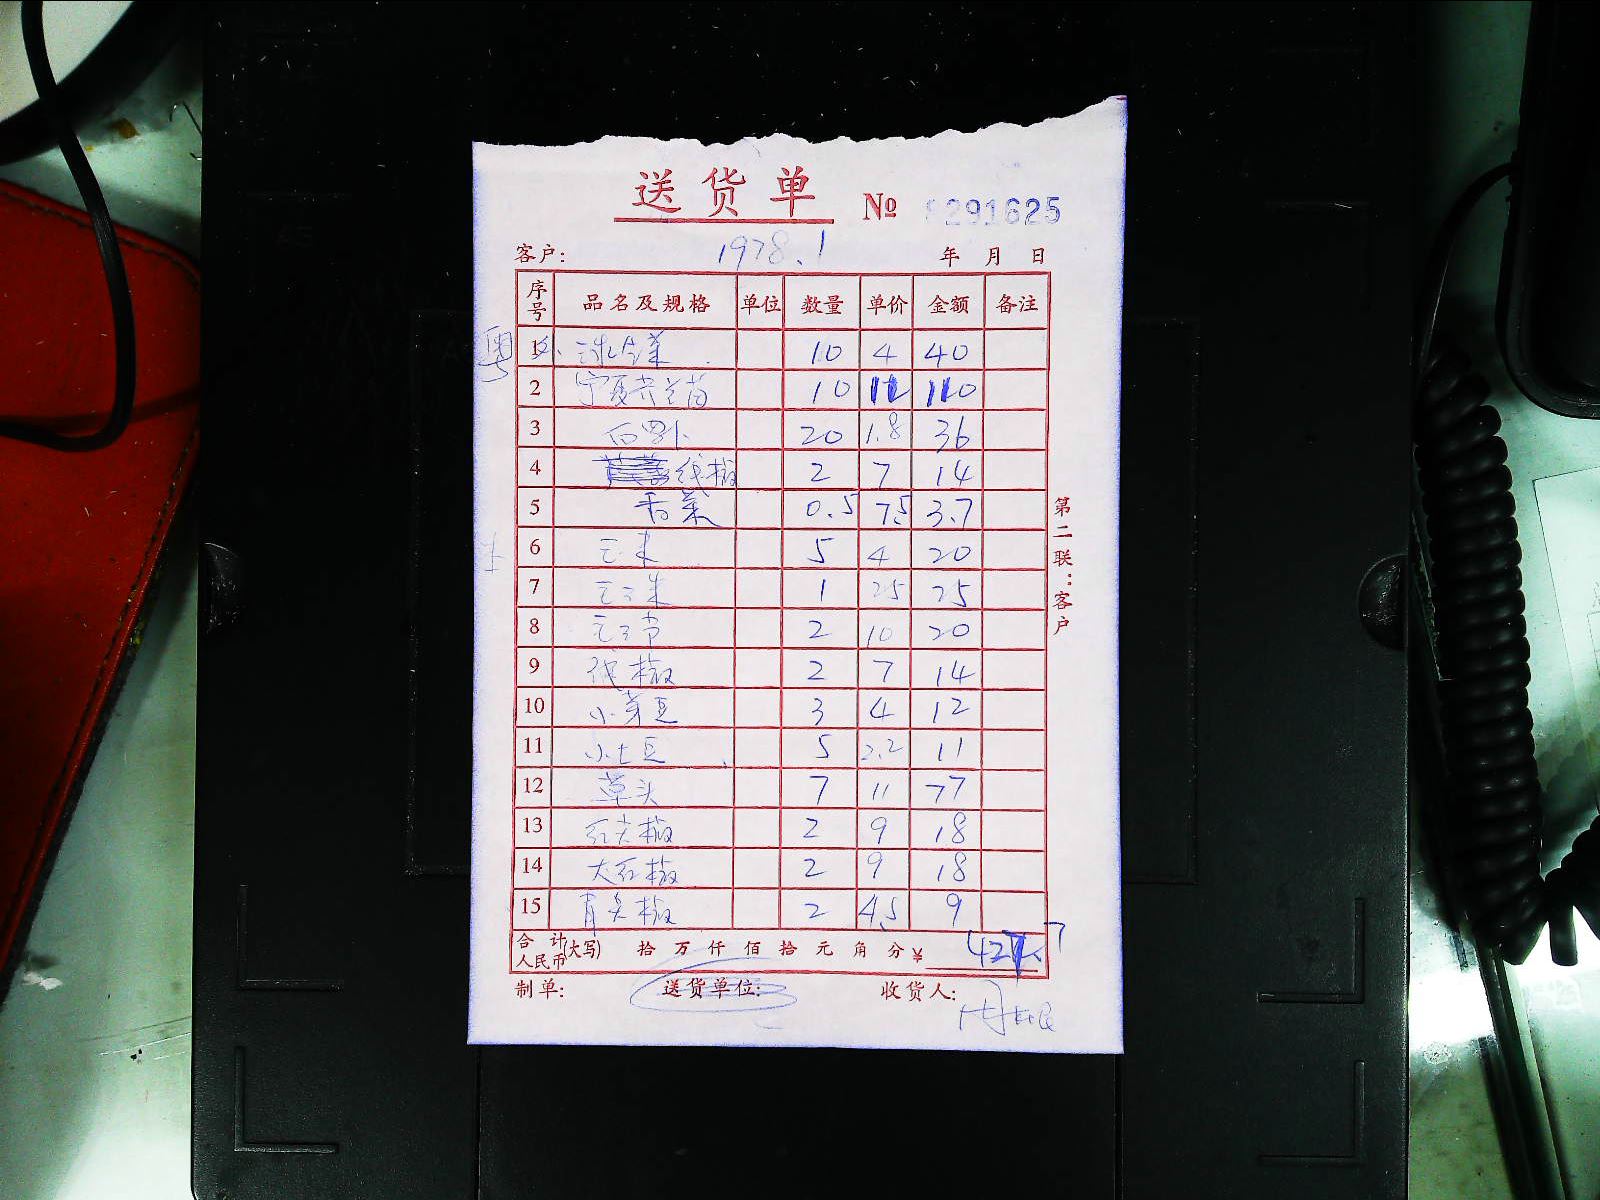 送货单 № 8291625
客户: 1978.1 年 月 日
序号 品名及规格 单位 数量 单价 金额 备注
粤
1 10 4 40
2 宁夏芥兰苗 10 11 110
3 白罗卜 20 1.8 36
4 线椒 2 7 14
5 香菜 0.5 7.5 3.7
6 毛末 5 4 20
7 1 25 25
8 2 10 20
9 线椒 2 7 14
10 小芽豆 3 4 12
11 小土豆 5 2.2 11
12 草头 7 11 77
13 红尖椒 2 9 18
14 大红椒 2 9 18
15 青尖椒 2 4.5 9
合计人民币(大写) 拾 万 仟 佰 拾 元 角 分 ¥ 427.7
制单: 送货单位: 收货人:
第二联:客户